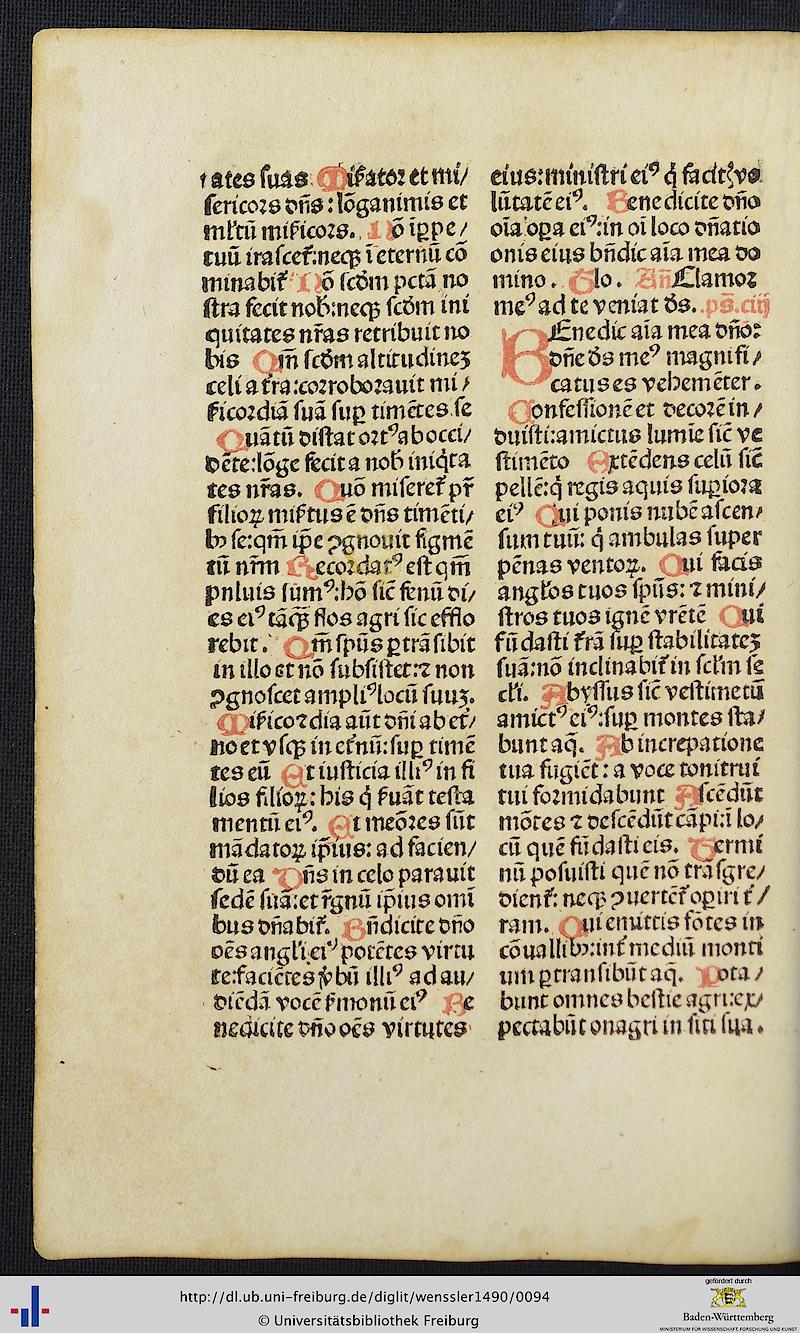 tates suas. Miẜator et mi/
sericors dñs: lõganimis et
ml'tũ miẜicors. Nõ ĩꝑpe/
tuũ irascet᷑: neqꝫ ĩ eternũ cõ
minabit᷑ Nõ scdm̃ pctã no
stra fecit nob̃: neqꝫ scdm̃ ini
quitates nr̃as retribuit no
bis Qm̃ scdm̃ altitudineꝫ
celi a t᷑ra: corroborauit mi/
ẜicordiã suã suꝑ timẽtes se
Quãtũ distat ortꝰ ab occi/
dẽte: lõge fecit a nob̃ iniq̃ta
tes nr̃as. Quõ miseret᷑ pr̃
filioꝝ miẜtus ẽ dñs timẽti/
bꝫ se: qm̃ ip̃e ꝯgnouit figmẽ
tũ nr̃m Recordatꝰ est qm̃
puluis sumꝰ: hõ sic̃ fenũ di/
es eiꝰ tãqꝫ̃ flos agri sic efflo
rebit. Qm̃ spũs ꝑtrãsibit
in illo et nõ subsistet: ⁊ non
ꝯgnoscet ampliꝰ locũ suuꝫ.
Miẜicordia aũt dñi ab et᷑/
no et vsqꝫ in et᷑nũ: suꝑ timẽ
tes eũ Et iusticia illiꝰ in fi
lios filioꝝ: his q̃ ẜuãt testa
mentũ eiꝰ. Et meõres sũt
mãdatoꝝ ip̃ius: ad facien/
dũ ea Dñs in celo parauit
sedẽ suã: et r᷑gnũ ip̃ius omĩ
bus dñabit᷑. Bñdicite dño
oẽs angl'i eiꝰ potẽtes virtu
te: faciẽtes v̾bũ illiꝰ ad au/
diẽdã vocẽ ẜmonũ eiꝰ Be
nedicite dño oẽs virtutes
eius: ministri eiꝰ q̃ facitꝭ vo
lũtatẽ eiꝰ. Benedicite dño
oĩa oꝑa eiꝰ: in oĩ loco dñatio
onis eius bñdic aĩa mea do
mino. Glo. Añ Clamor
meꝰ ad te veniat ds̃. ps̃. ciij
BEnedic aĩa mea dño:
dñe ds̃ meꝰ magnifi/
catus es vehemẽter.
Confessionẽ et decorẽ in/
duisti: amictus lumĩe sic̃ ve
stimẽto Extẽdens celũ sic̃
pellẽ: q̃ tegis aquis suꝑiora
eiꝰ Qui ponis nubẽ ascen/
sum tuũ: q̃ ambulas super
pẽnas ventoꝝ. Qui facis
angl'os tuos spũs: ⁊ mini/
stros tuos ignẽ vrẽtẽ Qui
fũdasti t᷑rã suꝑ stabilitateꝫ
suã: nõ inclinabit᷑ in scl'm se
cl'i. Abyssus sic̃ vestimẽtũ
amictꝰ eiꝰ: suꝑ montes sta/
bunt aq̃. Ab increpatione
tua fugiẽt: a voce tonitrui
tui formidabunt Ascẽdũt
mõtes ⁊ descẽdũt cãpi: ĩ lo/
cũ quẽ fũdasti eis. Termi
nũ posuisti quẽ nõ trãsgre/
dient᷑: neqꝫ ꝯuertẽt᷑ oꝑiri t᷑/
ram. Qui emittis fõtes in
cõuallibꝫ: int᷑ mediũ monti
um ꝑtransibũt aq̃. Pota/
bunt omnes bestie agri: ex/
pectabũt onagri in siti sua.
http://dl.ub.uni-freiburg.de/diglit/wenssler1490/0094
© Universitätsbibliothek Freiburg
gefördert durch
Baden-Württemberg
MINISTERIUM FÜR WISSENSCHAFT, FORSCHUNG UND KUNST